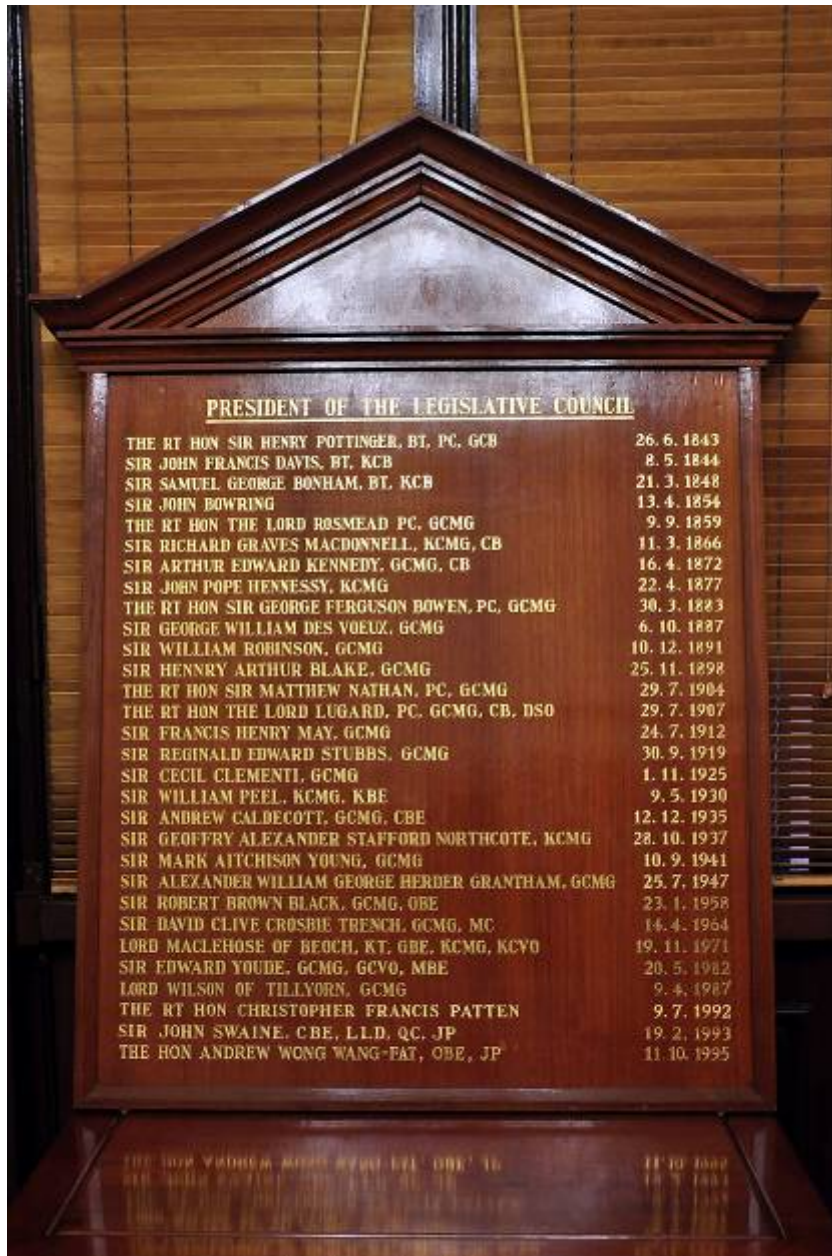 PRESIDENT OF THE LEGISLATIVE COUNCIL
THE RT HON SIR HENRY POTTINGER, BT, PC, GCB 26. 6. 1843
SIR JOHN FRANCIS DAVIS, BT, KCB 8. 5. 1844
SIR SAMUEL GEORGE BONHAM, BT, KCB 21. 3. 1848
SIR JOHN BOWRING 13. 4. 1854
THE RT HON THE LORD ROSMEAD PC, GCMG 9. 9. 1859
SIR RICHARD GRAVES MACDONNELL, KCMG, CB 11. 3. 1866
SIR ARTHUR EDWARD KENNEDY, GCMG, CB 16. 4. 1872
SIR JOHN POPE HENNESSY, KCMG 22. 4. 1877
THE RT HON SIR GEORGE FERGUSON BOWEN, PC, GCMG 30. 3. 1883
SIR GEORGE WILLIAM DES VOEUX, GCMG 6. 10. 1887
SIR WILLIAM ROBINSON, GCMG 10. 12. 1891
SIR HENNRY ARTHUR BLAKE, GCMG 25. 11. 1898
THE RT HON SIR MATTHEW NATHAN, PC, GCMG 29. 7. 1904
THE RT HON THE LORD LUGARD, PC, GCMG, CB, DSO 29. 7. 1907
SIR FRANCIS HENRY MAY, GCMG 24. 7. 1912
SIR REGINALD EDWARD STUBBS, GCMG 30. 9. 1919
SIR CECIL CLEMENTI, GCMG 1. 11. 1925
SIR WILLIAM PEEL, KCMG, KBE 9. 5. 1930
SIR ANDREW CALDECOTT, GCMG, CBE 12. 12. 1935
SIR GEOFFRY ALEXANDER STAFFORD NORTHCOTE, KCMG 28. 10. 1937
SIR MARK AITCHISON YOUNG, GCMG 10. 9. 1941
SIR ALEXANDER WILLIAM GEORGE HERDER GRANTHAM, GCMG 25. 7. 1947
SIR ROBERT BROWN BLACK, GCMG, OBE 23. 1. 1958
SIR DAVID CLIVE CROSBIE TRENCH, GCMG, MC 14. 4. 1964
LORD MACLEHOSE OF BEOCH, KT, GBE, KCMG, KCVO 19. 11. 1971
SIR EDWARD YOUDE, GCMG, GCVO, MBE 20. 5. 1982
LORD WILSON OF TILLYORN, GCMG 9. 4. 1987
THE RT HON CHRISTOPHER FRANCIS PATTEN 9. 7. 1992
SIR JOHN SWAINE, CBE, LLD, QC, JP 19. 2. 1993
THE HON ANDREW WONG WANG-FAT, OBE, JP 11. 10. 1995